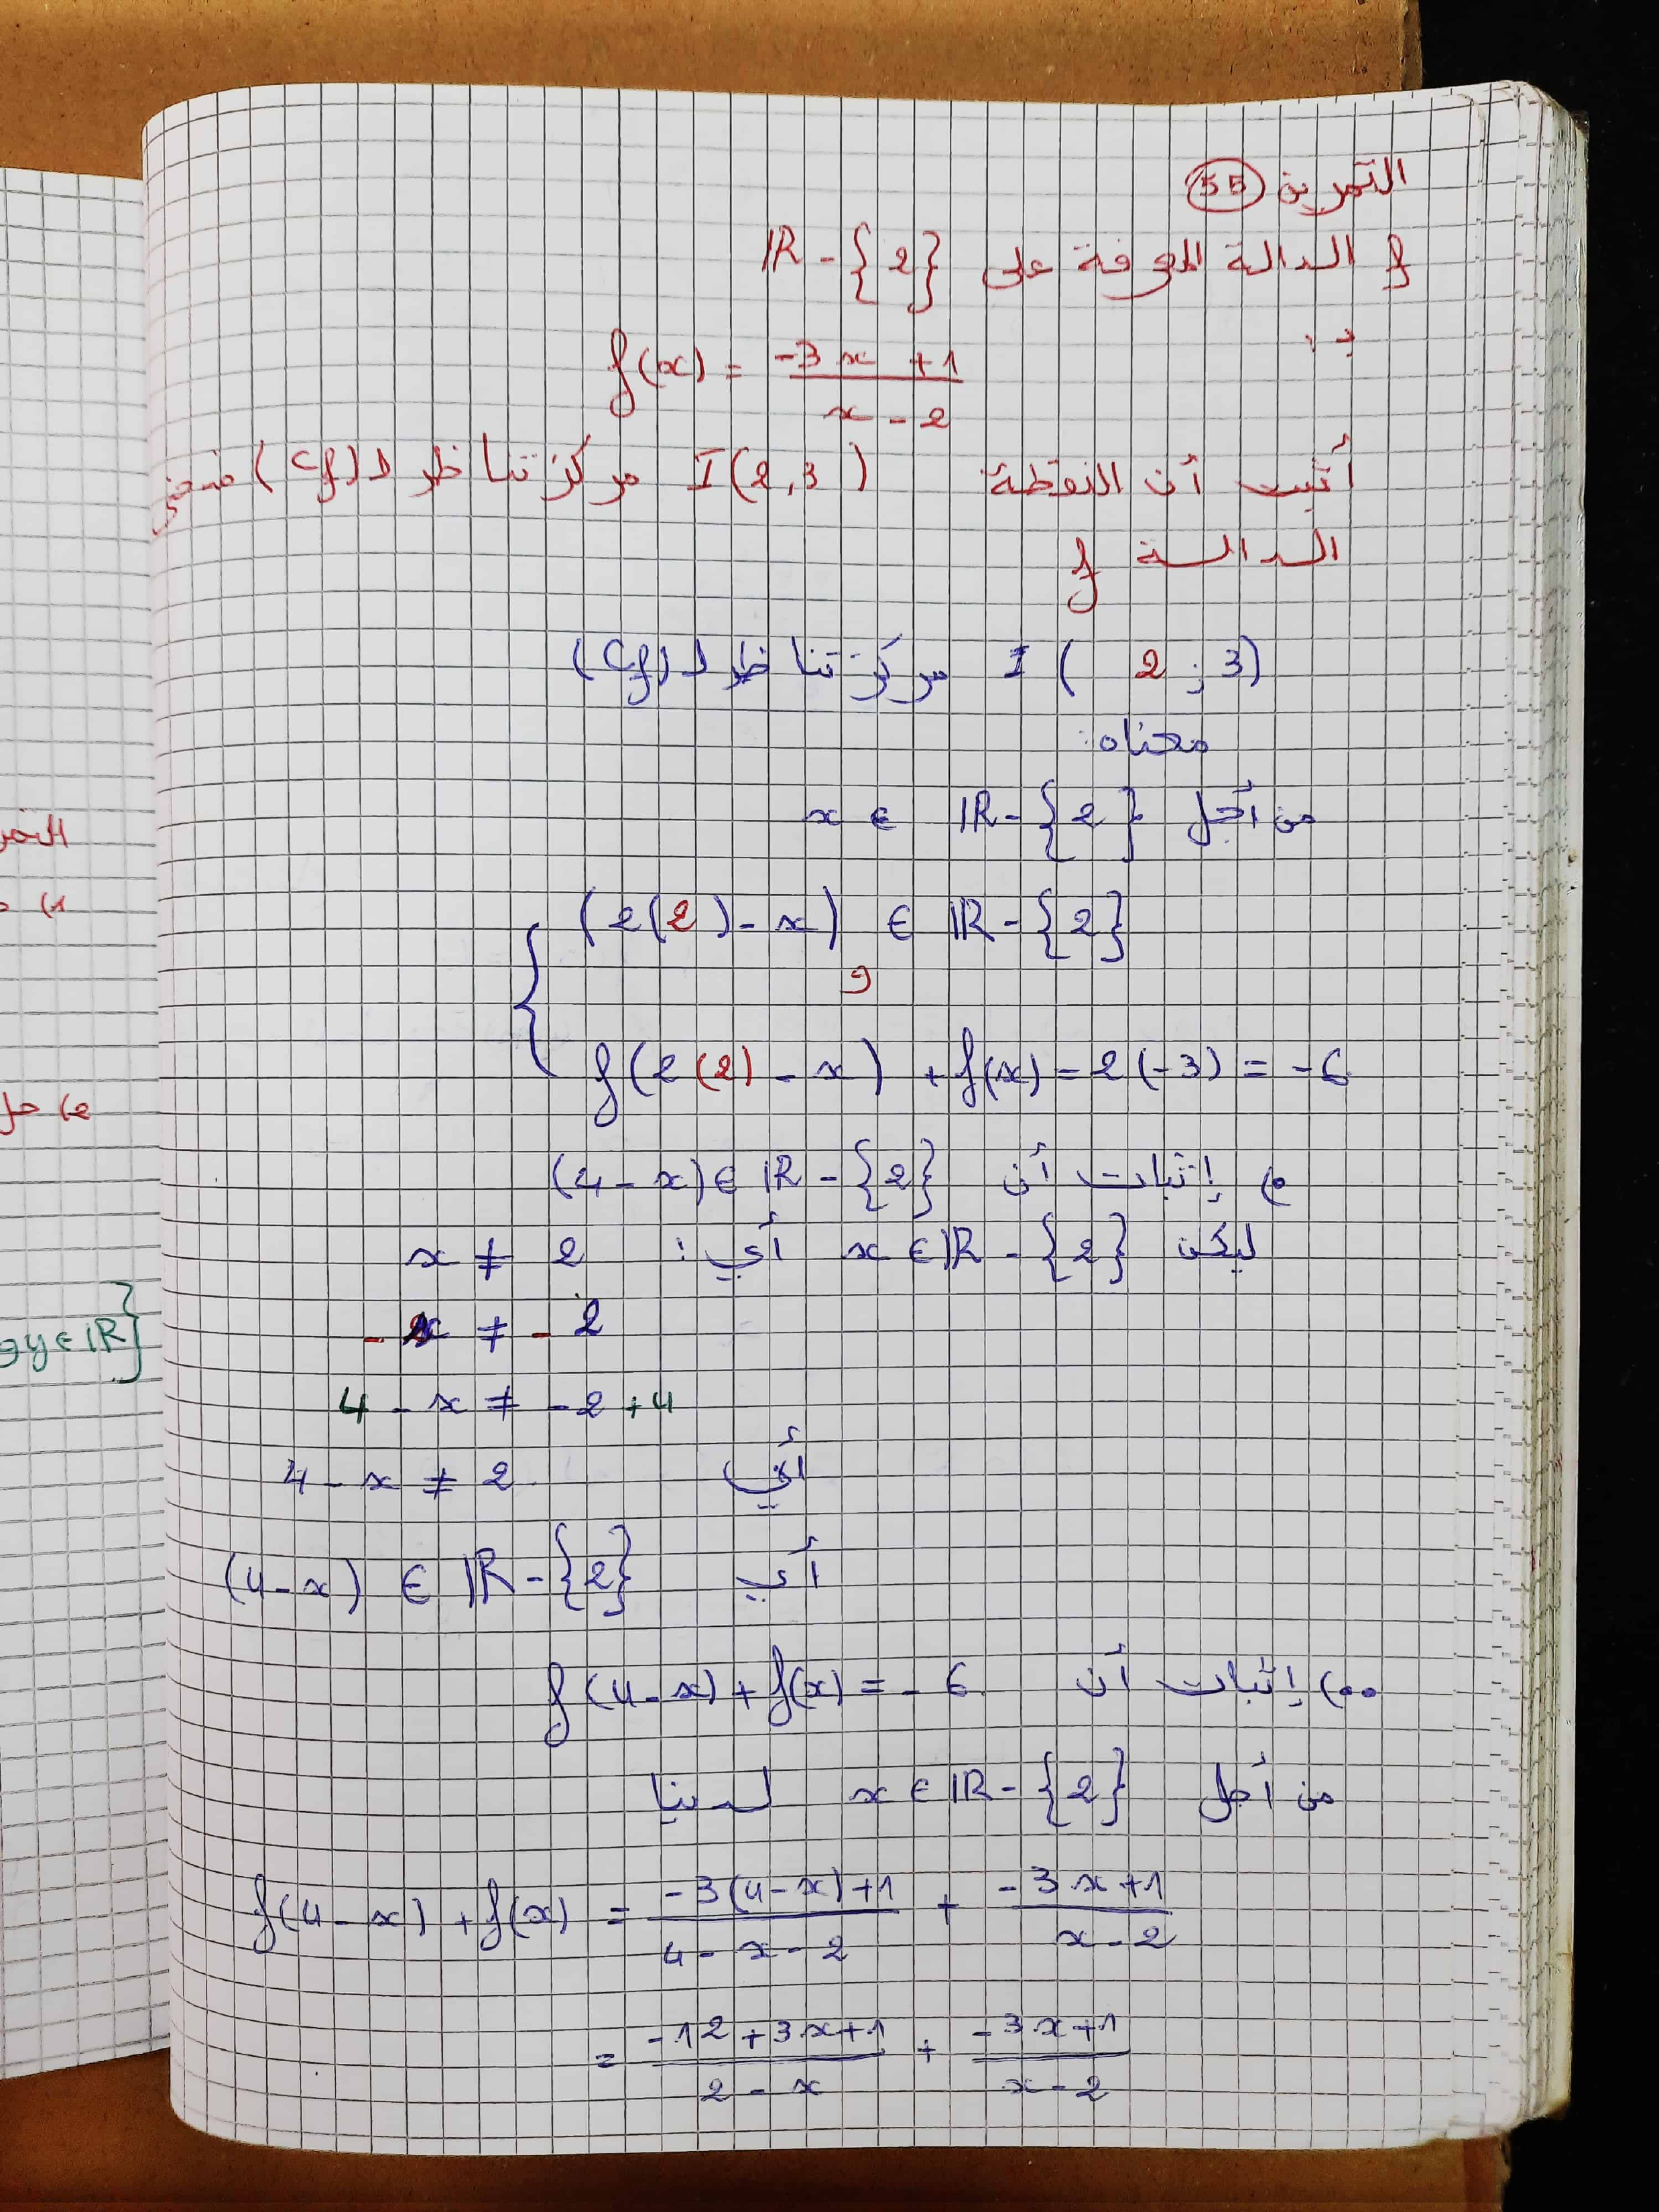 التمرين 55
f الدالة المعرفة على IR - {2}
بـ:
f(x) = (-3x + 1)/(x - 2)
أثبت أن النقطة I(2,3) مركز تناظر لـ (Cf) منحنى
الدالة f
I ( 2 ; 3) مركز تناظر لـ (Cf)
معناه:
من أجل x ∈ IR - {2}
(2(2) - x) ∈ IR - {2}
و
f(2(2) - x) + f(x) = 2(-3) = -6
•) إثبات أن (4 - x) ∈ IR - {2}
ليكن x ∈ IR - {2} أي: x ≠ 2
- x ≠ - 2
4 - x ≠ -2 + 4
أي 4 - x ≠ 2
أي (4 - x) ∈ IR - {2}
••) إثبات أن f(4 - x) + f(x) = - 6
من أجل x ∈ IR - {2} لدينا
f(4 - x) + f(x) = (-3(4 - x) + 1)/(4 - x - 2) + (-3x + 1)/(x - 2)
= (-12 + 3x + 1)/(2 - x) + (-3x + 1)/(x - 2)
y ∈ IR}